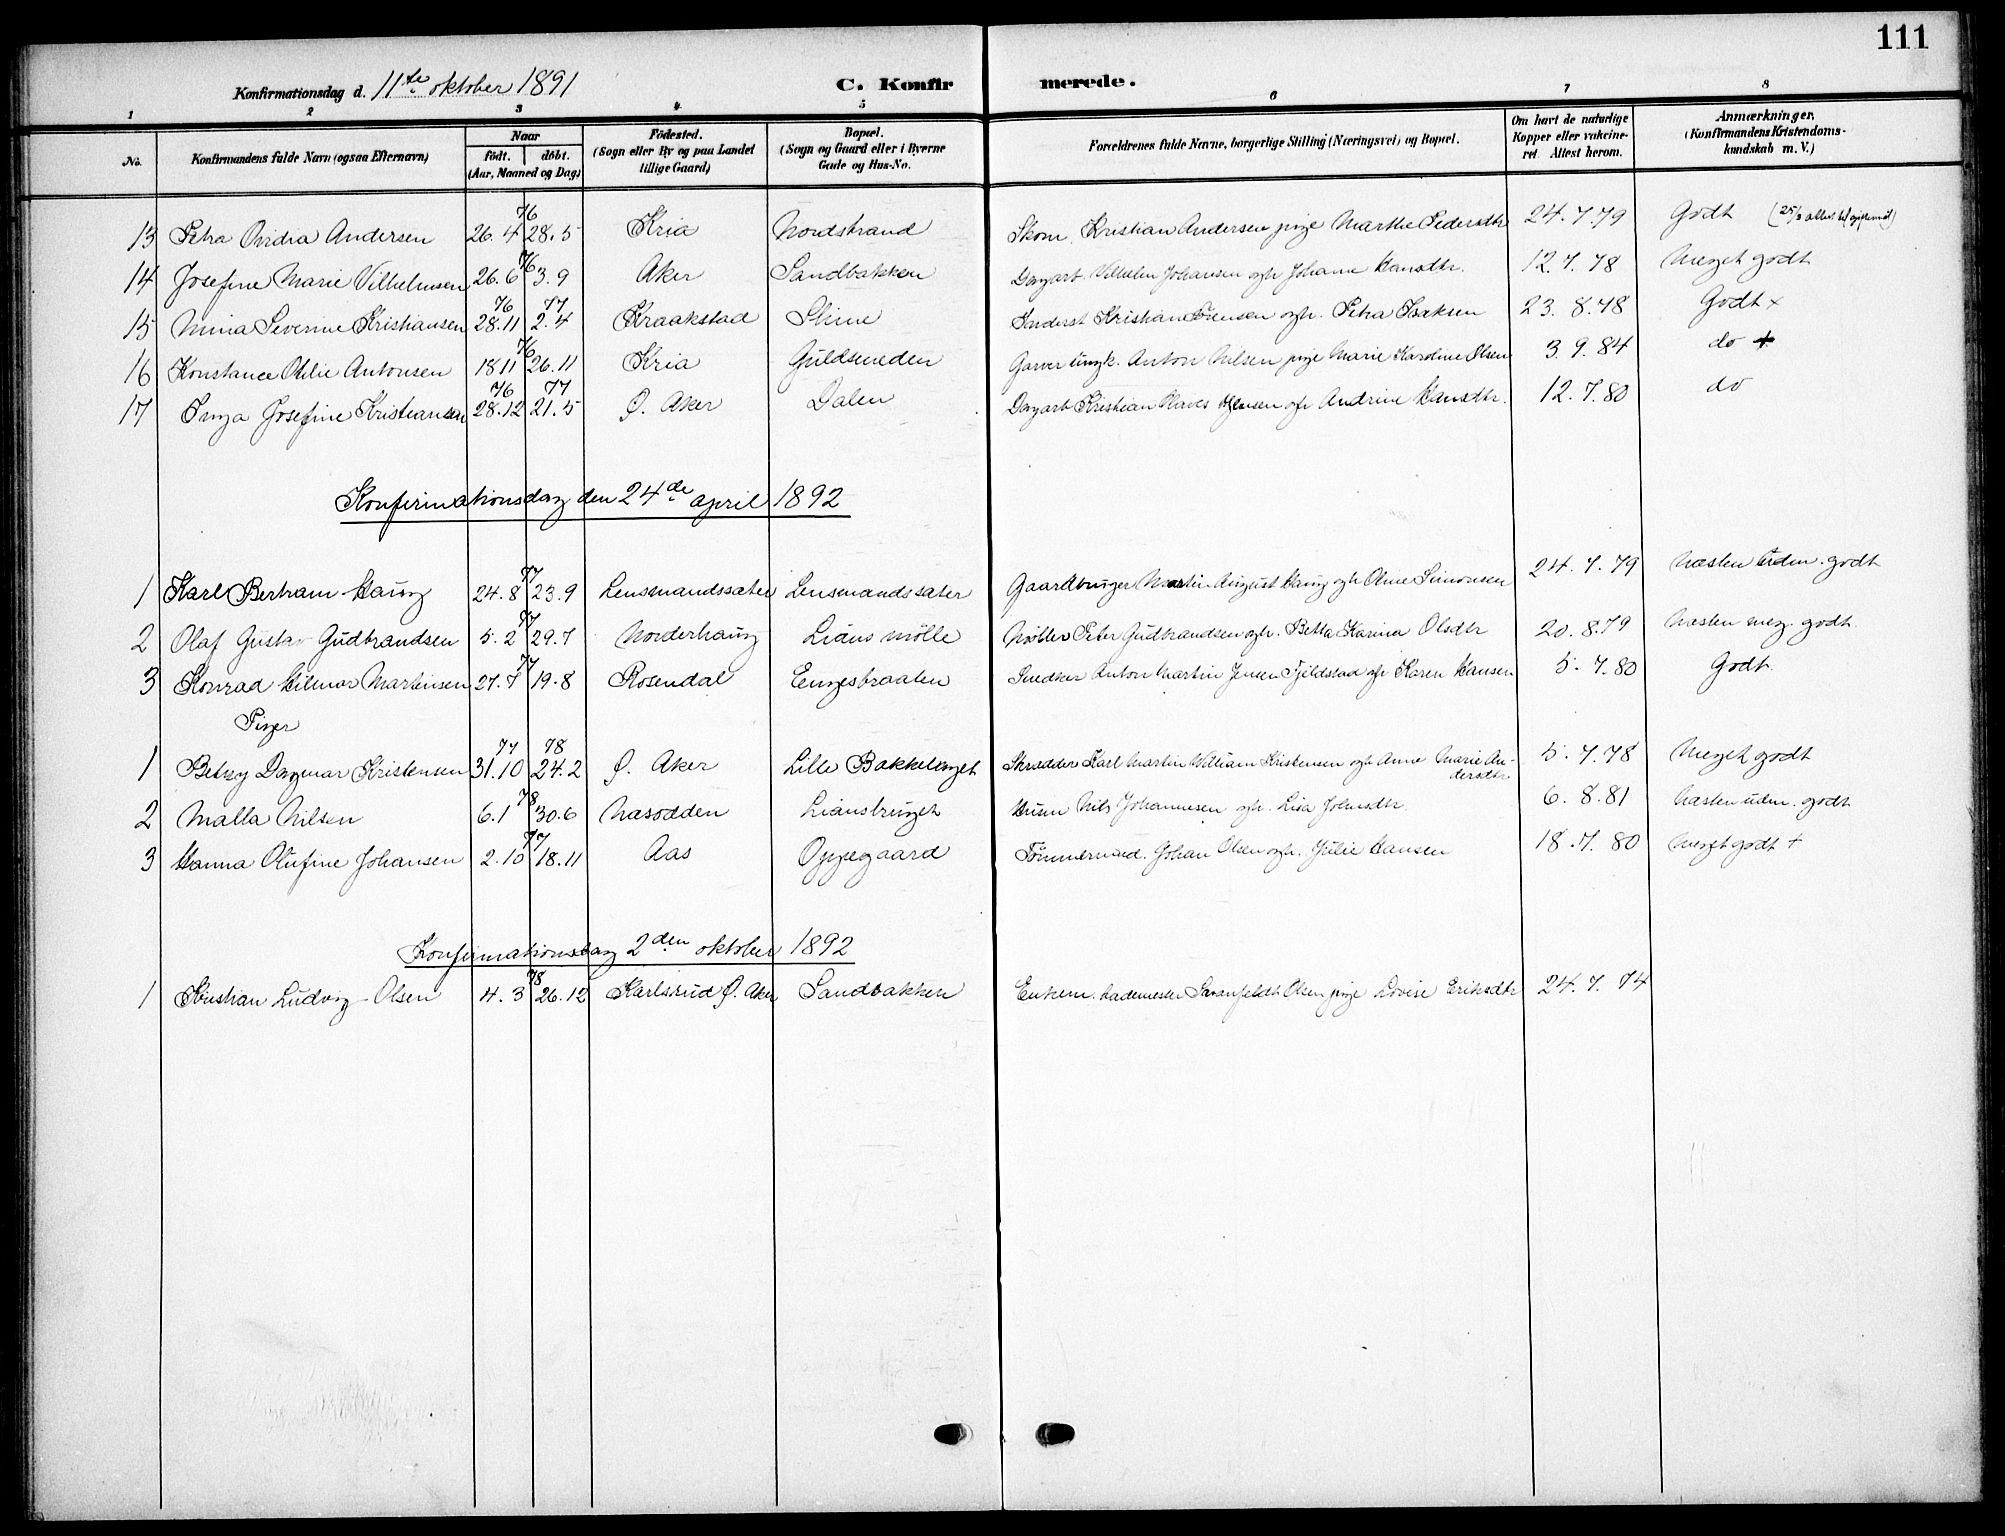 111
Konfirmationsdag d. 11te oktober 1891 C. Konfirmerede.
1 2 3 4 5 6 7 8
No. Konfirmandens fulde Navn (ogsaa Efternavn) Naar födt. döbt. (Aar, Maaned og Dag) Födested. (Sogn eller By og paa Landet tillige Gaard) Bopæl. (Sogn og Gaard eller i Byerne Gade og Hus-No. Forældrenes fulde Navne, borgerlige Stilling (Næringsvei) og Bopæl. Om havt de naturlige Kopper eller vakcineret. Attest herom. Anmærkninger. (Konfirmandens Kristendomskundskab m. V.)
13 Petra Ovidia Andersen 26.4 76 28.5 Kria Nordstrand Skom. Kristian Andersen pige Marthe Pedersdtr 24.7.79 Godt
14 Josefine Marie Vilhelmsen 26.6 76 3.9 Aker Sandbakken Dagarb. Vilhelm Johansen ogh Johanne Hansdtr. 12.7.78 Meget godt
15 Mina Severine Kristiansen 76 28.11 77 2.4 Kraakstad Slime Kristian Sörensen ogh. Petra Isaksen 23.8.78 Godt x
16 Konstance Otilie Antonsen 18.11 76 26.11 Kria Guldsmeden Garver ungk. Anton Nilsen pige Marie Karoline Olsen 3.9.84 do +
17 Inga Josefine Kristiansen 76 28.12 77 21.5 Ø. Aker Dalen Dagarb Kristian Jensen ogh Andrine Hansdtr. 12.7.80 do
Konfirmationsdag den 24de april 1892
1 Karl Bertram Haug 24.8 77 23.9 Lensmandssæter Lensmandssæter Gaardbruger Martin August Haug ogh Oline Simonsen 24.7.79 Næsten udm. godt
2 Olaf Gustav Gudbrandsen 5.2 77 29.7 Norderhaug Lians mölle Möller Peter Gudbrandsen ogh. Betta Karina Olsdtr 20.8.79 Næsten meg. godt
3 Konrad Hilmar Martinsen 27.7 77 19.8 Rosendal Engesbraaten Snedker Anton Martin Jensen Fjeldstad ogh Karen Hansen 5.7.80 Godt.
Piger
1 Betsey Dagmar Kristensen 77 31.10 78 24.2 Ø. Aker Lille Bakkelaget Skrædder Karl Martin William Kristensen ogh Anne Marie Andersdtr 5.7.78 Meget godt
2 Malla Nilsen 6.1 78 30.6 Næsodden Liansbruget Husm Nils Johannesen ogh. Lisa Johnsdtr. 6.8.81 Næsten udm. godt
3 Hanna Olufine Johansen 2.10 77 18.11 Aas Oppegaard Tömmermand. Johan Olsen ogh. Julie Hansen 18.7.80 Meget godt +
Konfirmationsdag 2den oktober 1892
1 Kristian Ludvig Olsen 4.3 78 26.12 Karlsrud Ø. Aker Sandbakken Enkem. Lademester Svanfeldt Olsen pige Lovise Eriksdtr 24.7.74